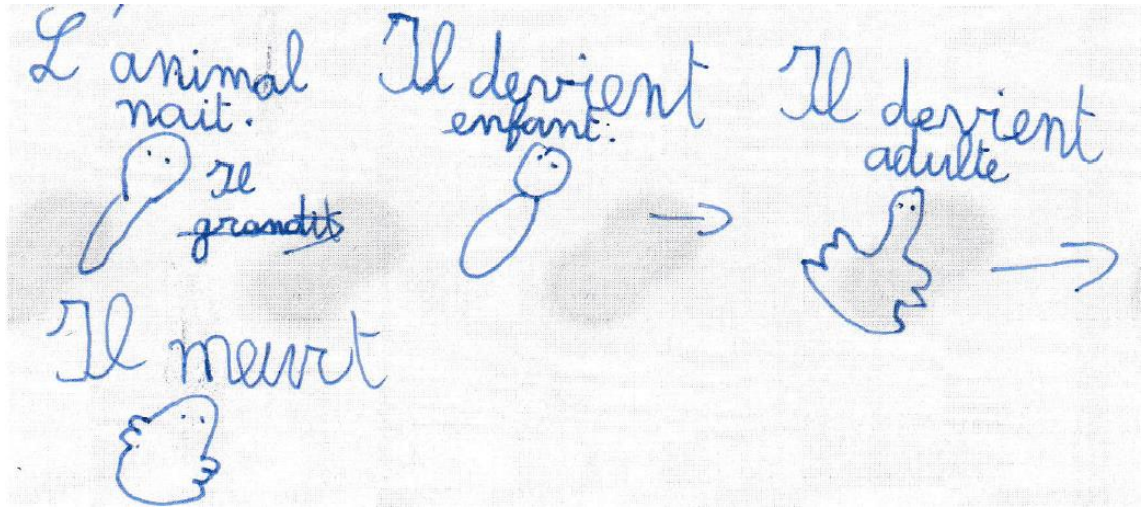 L'animal
nait.
Il
grandit
Il devient
enfant.
Il devient
adulte
Il meurt